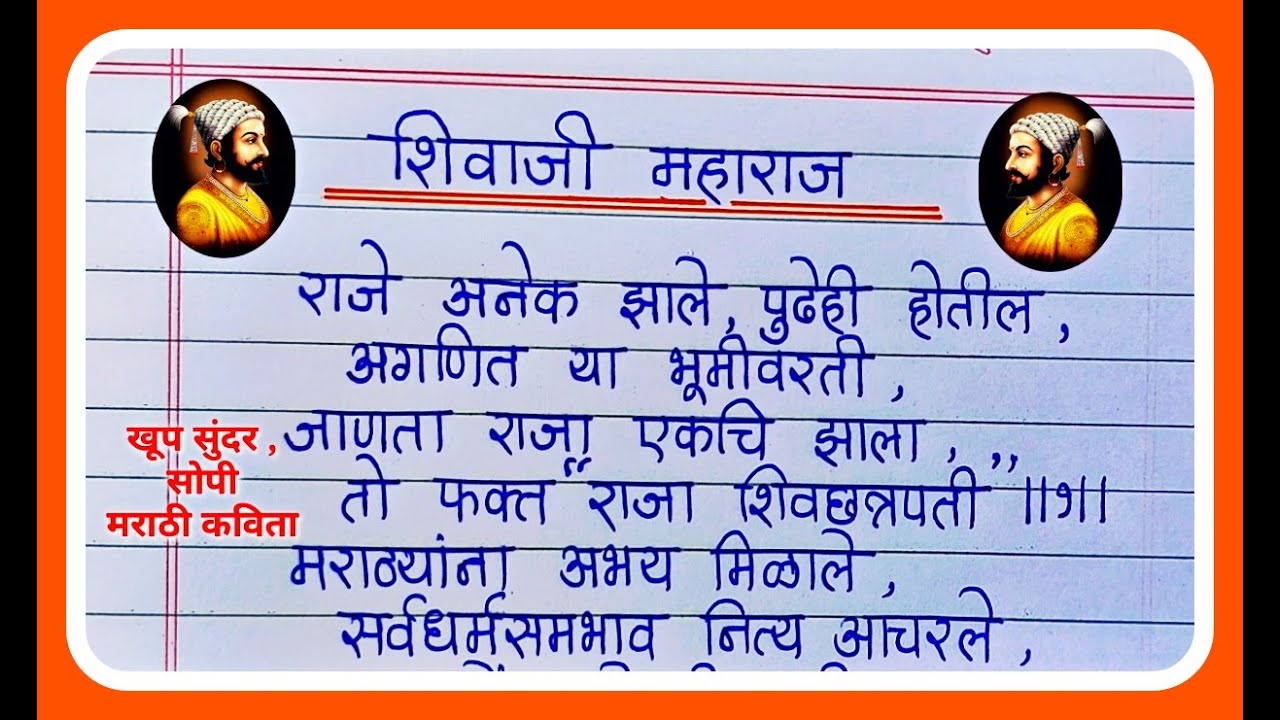 शिवाजी महाराज
राजे अनेक झाले, पुढेही होतील,
अगणित या भूमीवरती,
जाणता राजा एकचि झाला,
तो फक्त "राजा शिवछत्रपती" ||१||
मराठ्यांना अभय मिळाले,
सर्वधर्मसमभाव नित्य आचरले,
खूप सुंदर,
सोपी
मराठी कविता